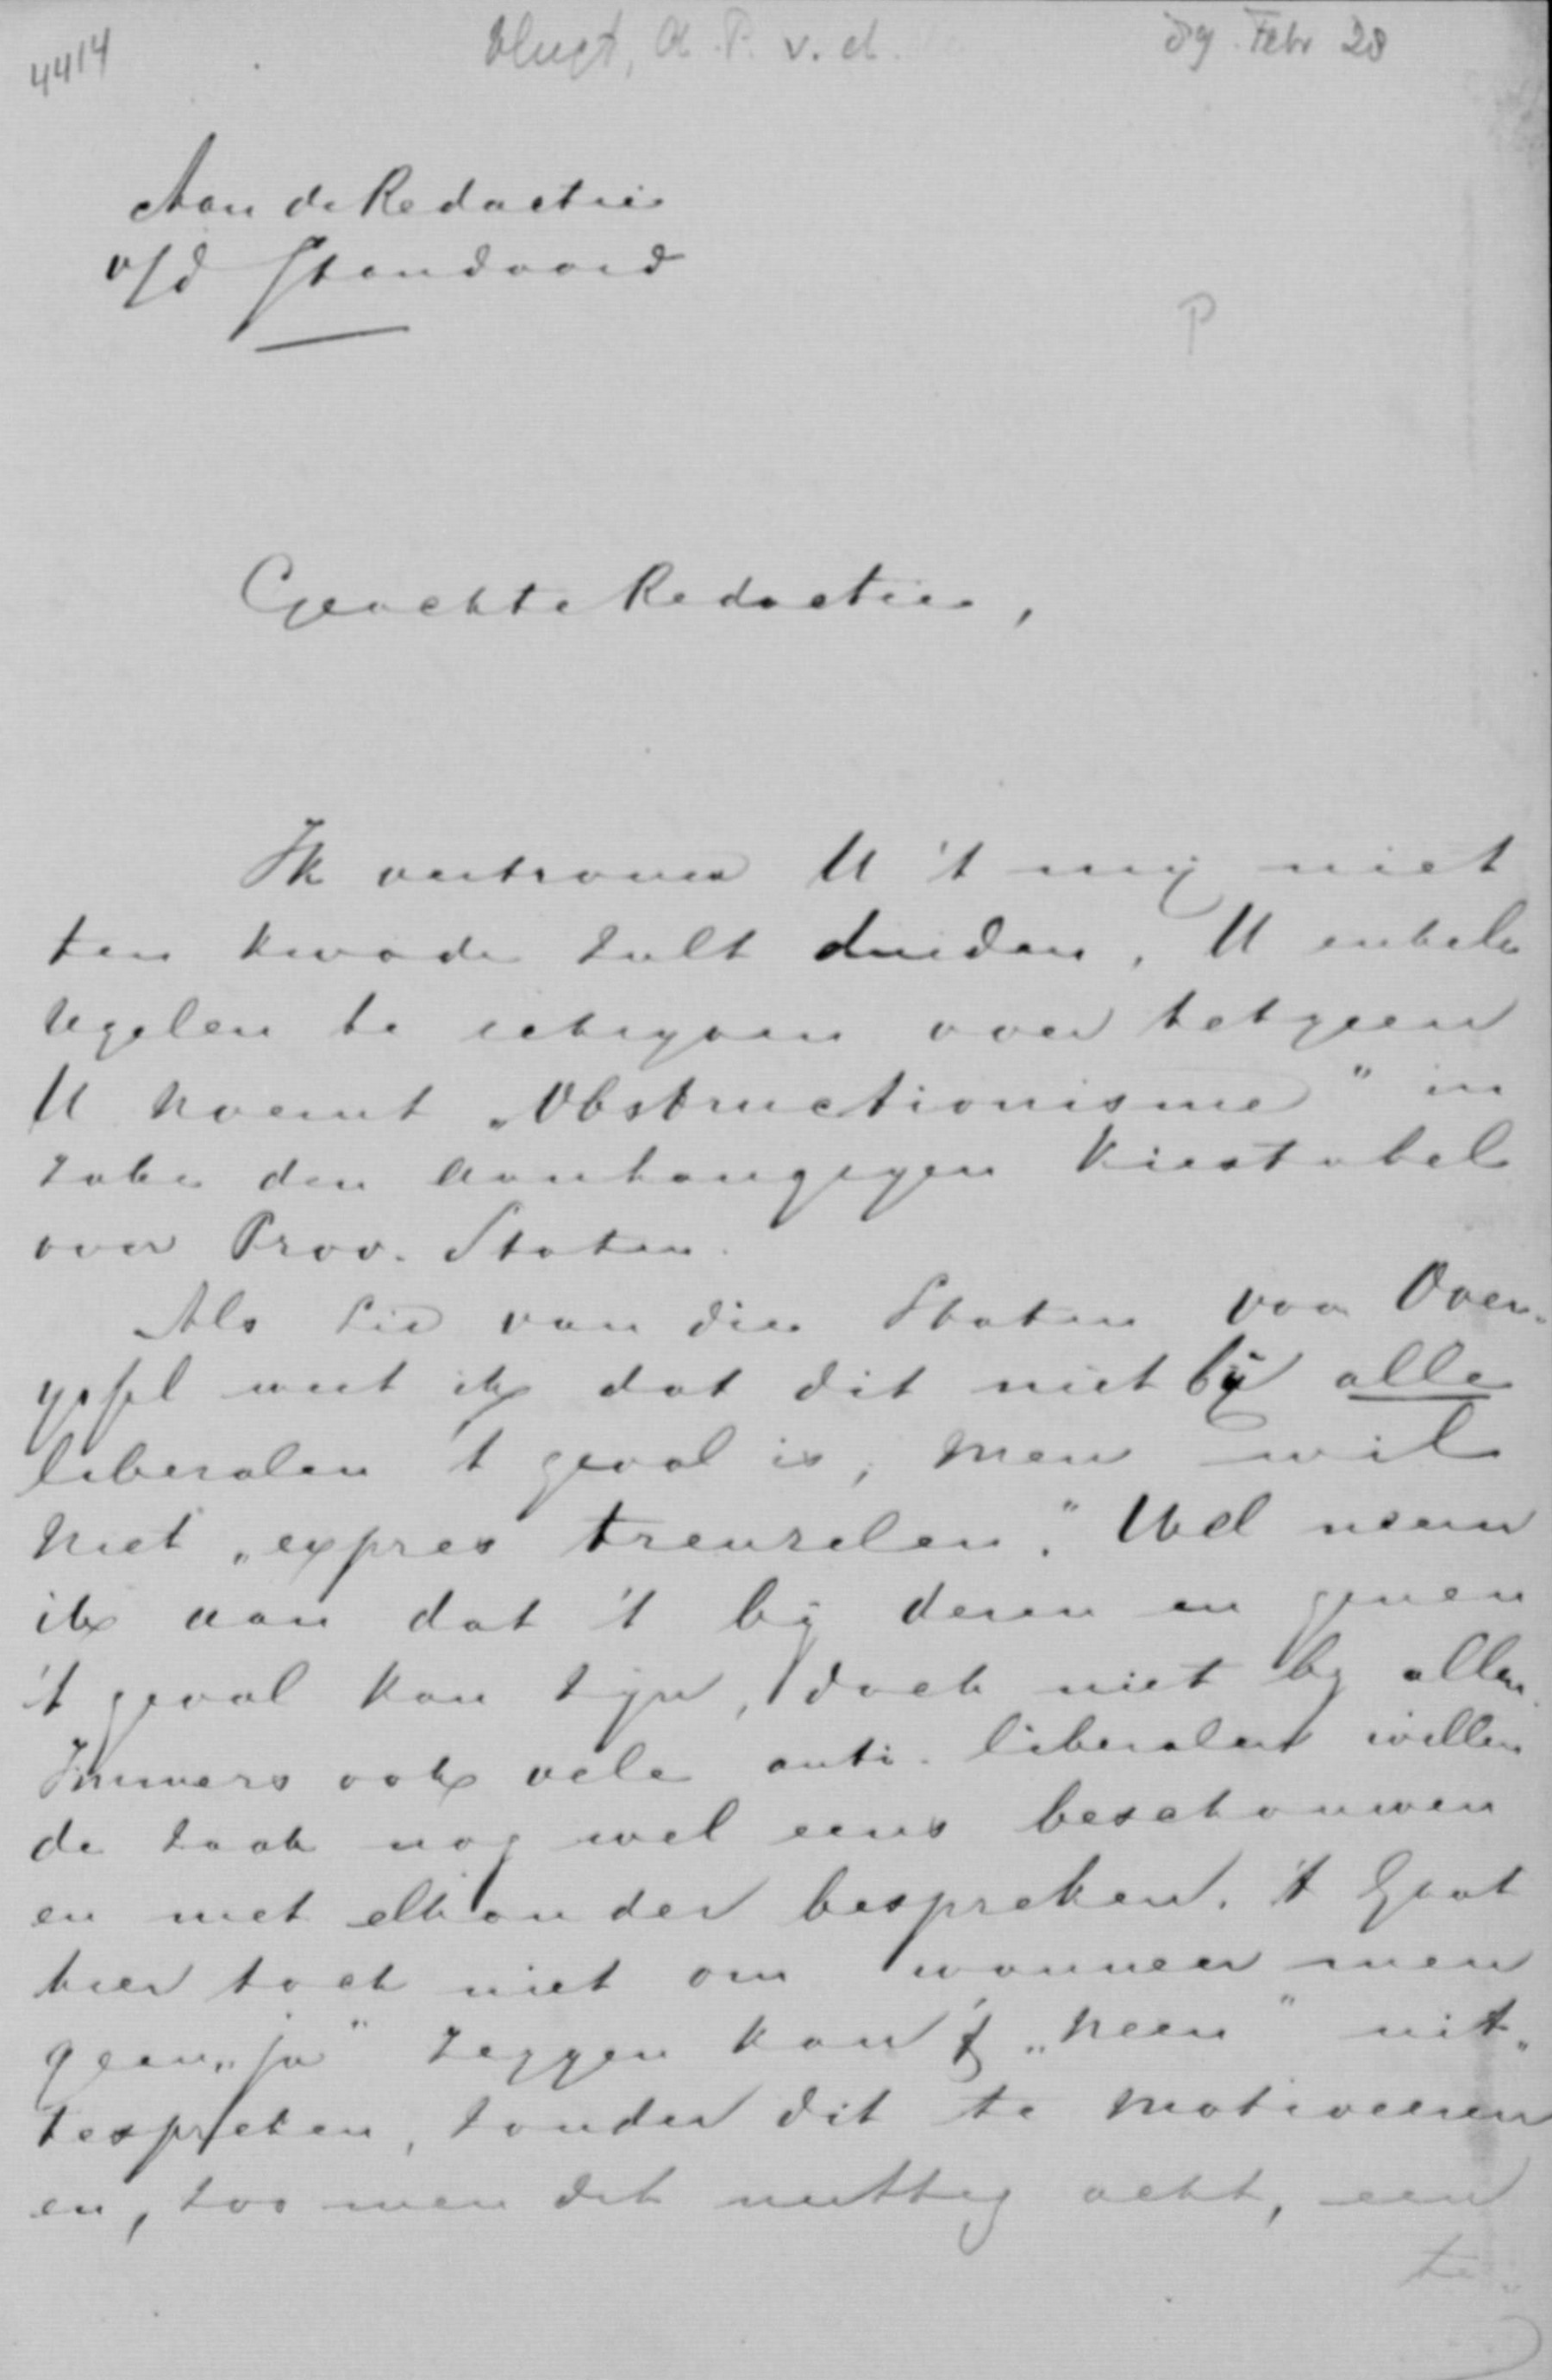 4414
Vlugt, A. P. v. d.
89. Febr 28
Aan de Redactie
v/d Standaard
P
Geachte Redactie,
Ik vertrouw U 't mij niet
ten kwade zult duiden, U enkele
regelen te schryven over hetgeen
U noemt „Obstructionisme" in
zake den aanhangigen Kiestabel
over Prov. Staten.
Als Lid van die Staten voor Over-
yssel weet ik dat dit niet bij alle
liberalen 't geval is, men wil
niet „expres treuzelen". Wel neem
ik aan dat 't bij dezen en genen
't geval kan zyn, doch niet by allen.
Immers ook vele anti-liberalen willen
de zaak nog wel eens beschouwen
en met elkander bespreken. 't Gaat
hier toch niet om wanneer men
geen „ja" zeggen kan „neen" uit-
tespreken, zonder dit te motiveeren
en, zoo men dit nuttig acht, een
te-